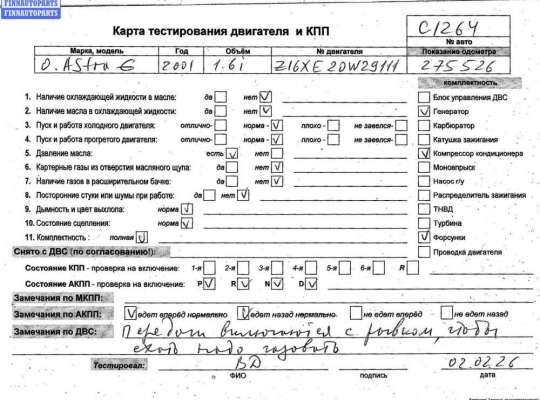 FINNAUTOPARTS
FINNAUTOPARTS
Карта тестирования двигателя и КПП
С1264
№ авто
Марка, модель Год Объём № двигателя Показание одометра
O. Astra G 2001 1.6i Z16XE20W29111 275526
комплектность
1. Наличие охлаждающей жидкости в масле: да нет V
Блок управления ДВС
2. Наличие масла в охлаждающей жидкости: да нет V
V Генератор
3. Пуск и работа холодного двигателя: отлично- норма - V плохо - не завелся-
Карбюратор
4. Пуск и работа прогретого двигателя: отлично- норма - V плохо - не завелся-
Катушка зажигания
5. Давление масла: есть V нет
V Компрессор кондиционера
6. Картерные газы из отверстия масляного щупа: да нет V
Моновпрыск
7. Наличие газов в расширительном бачке: да нет V
Насос г/у
8. Посторонние стуки или шумы при работе: да нет V
Распределитель зажигания
9. Дымность и цвет выхлопа: норма V
ТНВД
10. Состояние сцепления: норма V
Турбина
11. Комплектность : полная V
V Форсунки
Снято с ДВС (по согласованию!):
Проводка двигателя
Состояние КПП - проверка на включение: 1-я 2-я 3-я 4-я 5-я 6-я R
Состояние АКПП - проверка на включение: P V R V N V D V
Замечания по МКПП:
Замечания по АКПП: V едет вперёд нормально V едет назад нормально не едет вперёд не едет назад
Замечания по ДВС: Передачи включаются с рывком, чтобы
ехать надо газовать
Тестировал: ВД 02.02.26
ФИО подпись дата